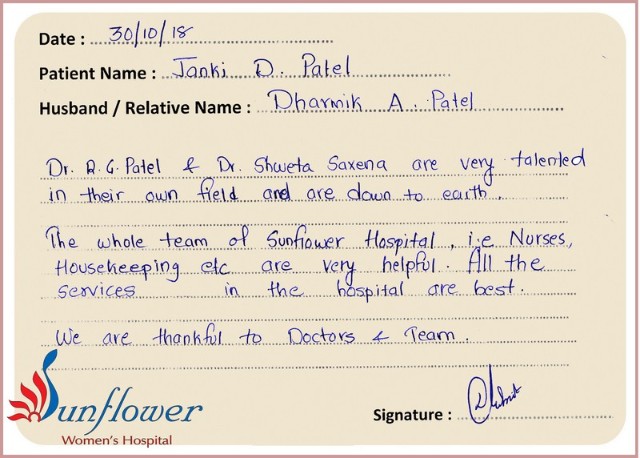 Date : 30/10/18
Patient Name : Janki D. Patel
Husband / Relative Name : Dharmik A. Patel
Dr. R. G. Patel & Dr. Shweta Saxena are very talented
in their own field and are down to earth.
The whole team of Sunflower Hospital, i.e Nurses,
Housekeeping etc are very helpful. All the
services in the hospital are best.
We are thankful to Doctors & Team.
Sunflower
Women's Hospital
Signature :